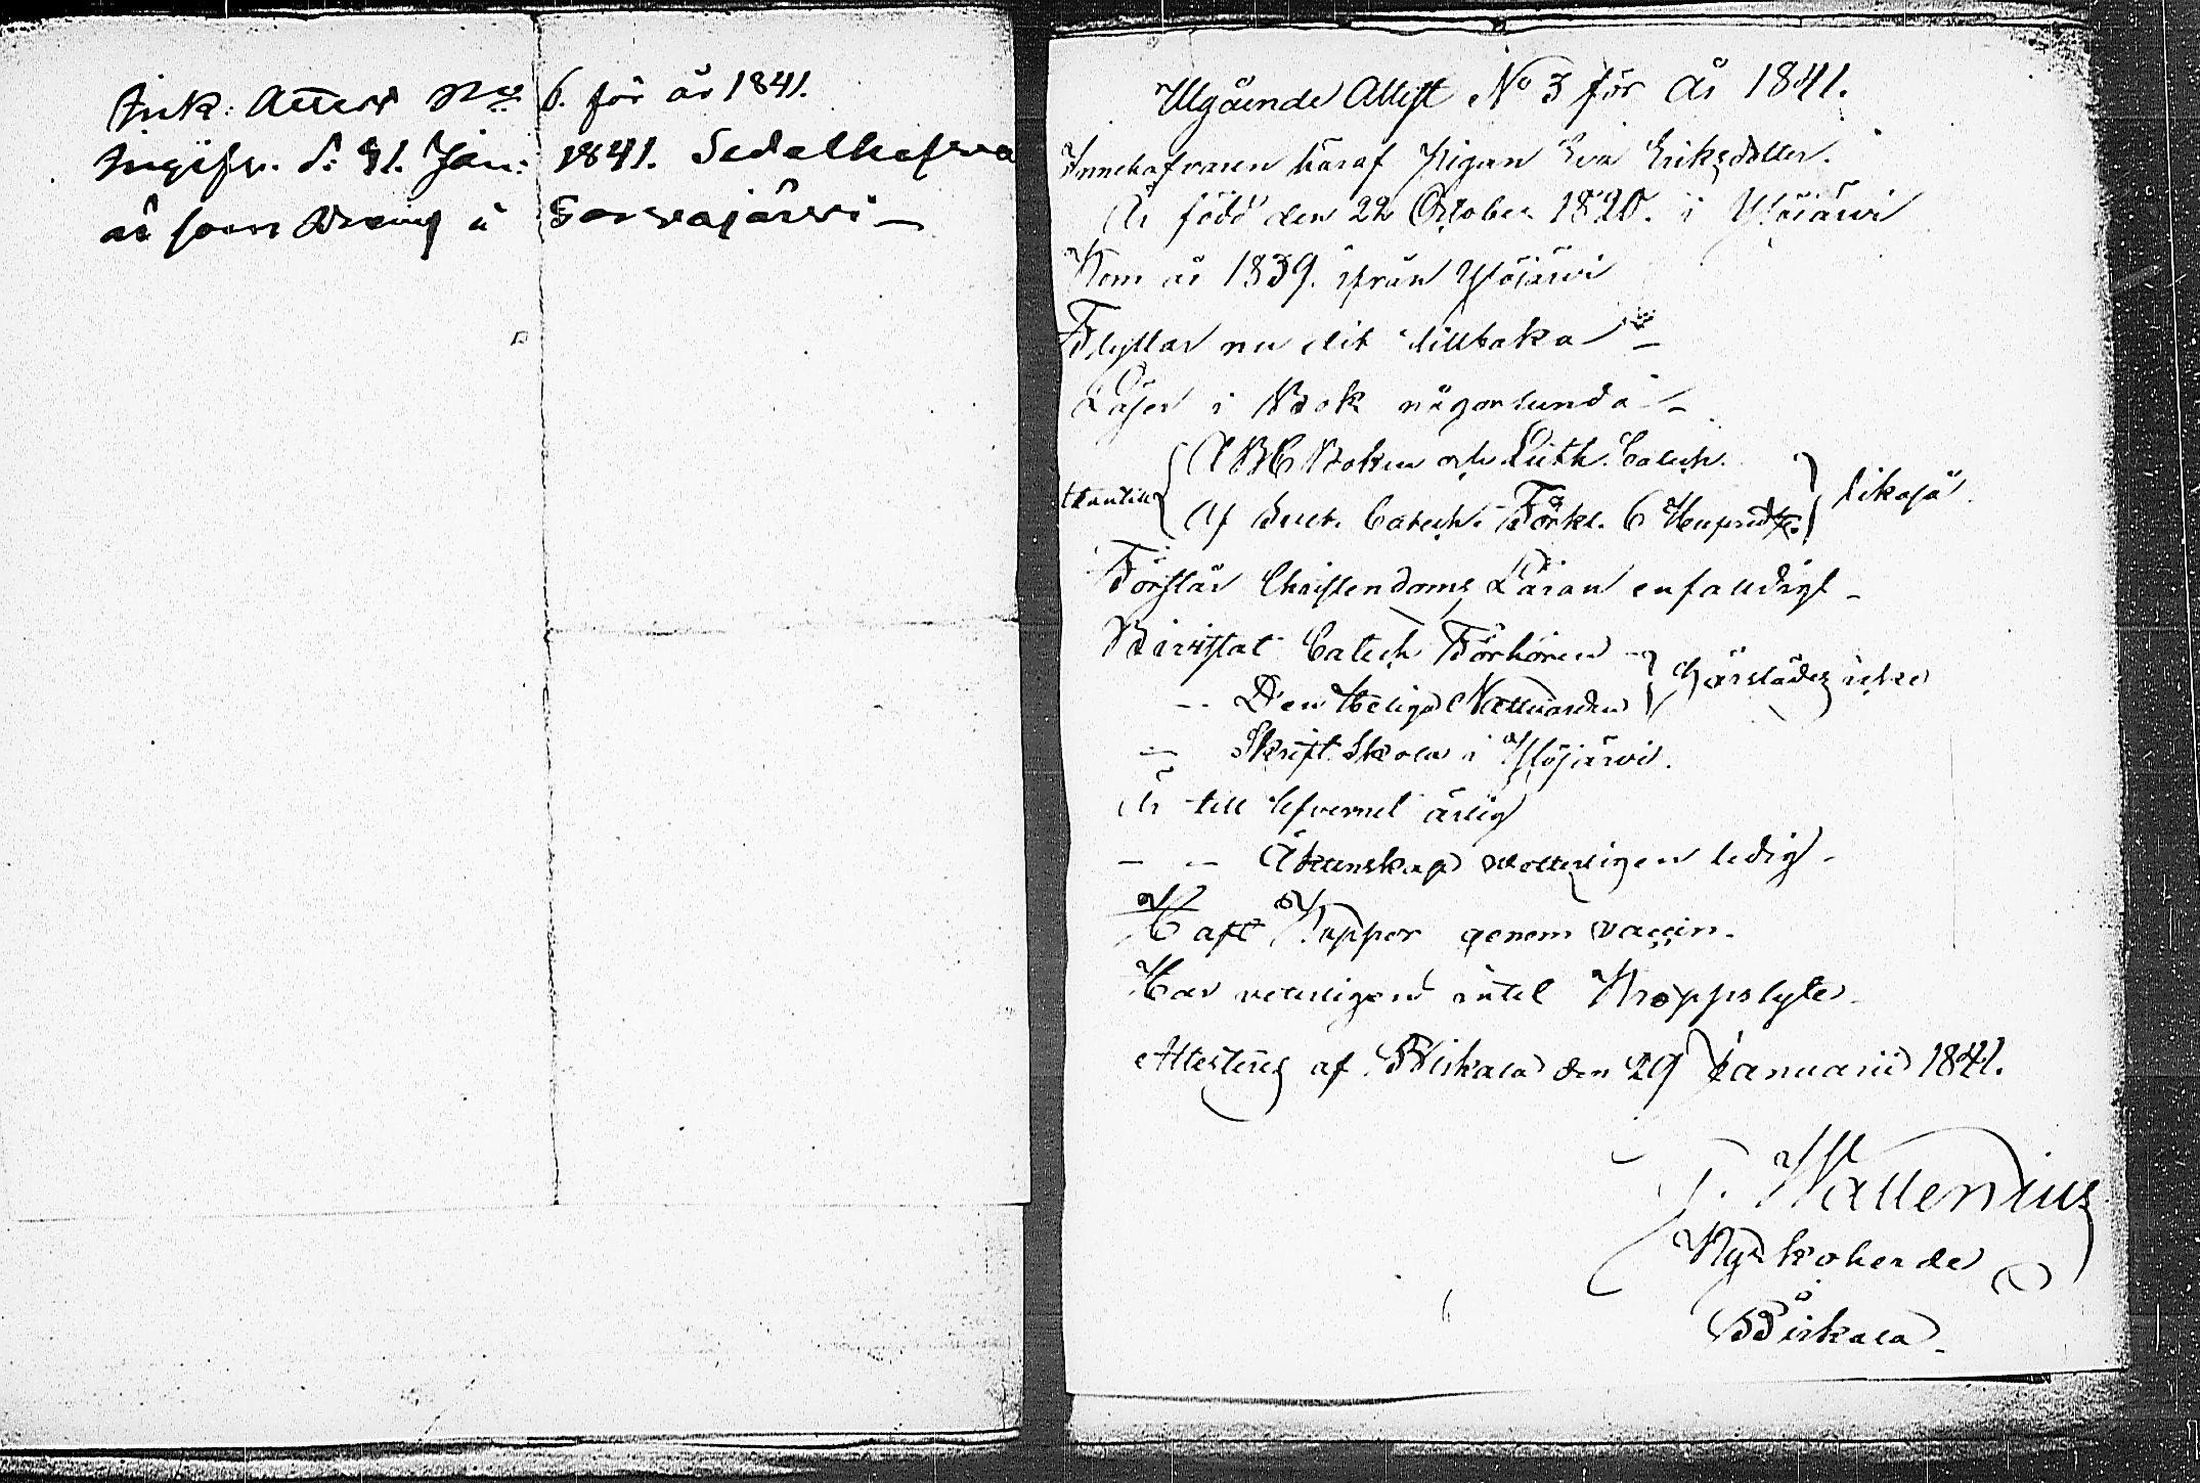 Ink: Attest No 6. för år 1841.
Ingifv. d: 31. Jan: 1841. Sedelhafva
är som Dräng å
Utgående Attest No 3 för År 1841.
Innehafvaren häraf Pigan Eva Eriksdotter.
Är född den 22 October 1820. i Ylöjärvi
Kom år 1839. ifrån Ylöjärvi
Flyttar nu dit tillbaka –
Läser i Bok någorlunda –
ABC Boken och Luth. Catech.
utantill likaså
Af Sveb. Catech. Förkl. 6 Hufvudst.
Förstår Christendoms Läran enfalldigt –
Bivistat Catech Förhören
härstädes icke
– Den Heliga Nattvarden
– Skrift Skola i Ylöjärvi.
Är till lefvernet ärlig
– – Äktenskap vetterligen ledig –
Haft Koppor genom vaccin.
Har vetterligen intet Kroppslyte.
Attesteres af Birkala den 29 Januarii 1841.
F. Wallenius
Kyrkoherde
Birkala.